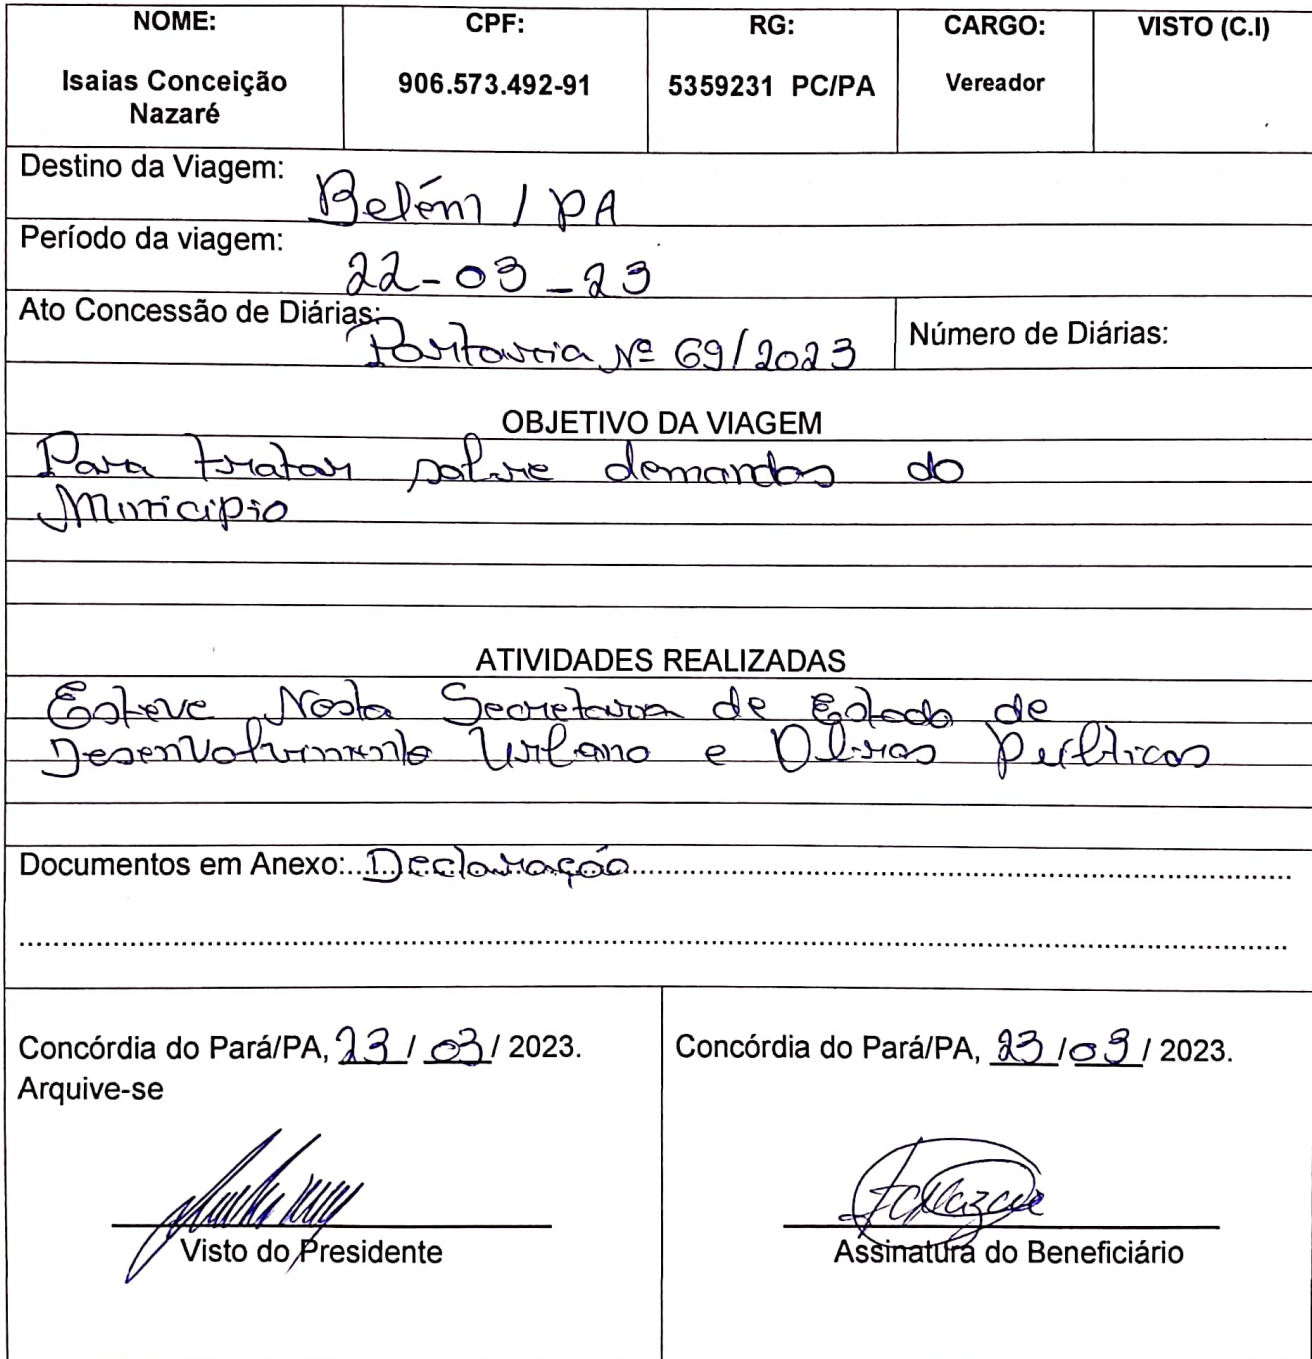 NOME: CPF: RG: CARGO: VISTO (C.I)
Isaias Conceição 906.573.492-91 5359231 PC/PA Vereador
Nazaré
Destino da Viagem:
Belém / PA
Período da viagem:
22-03-23
Ato Concessão de Diárias:
Portaria Nº 69/2023
Número de Diárias:
OBJETIVO DA VIAGEM
Para tratar sobre demandas do
Município
ATIVIDADES REALIZADAS
Esteve Nesta Secretaria de Estado de
Desenvolvimento Urbano e Obras Públicas
Documentos em Anexo: Declaração
Concórdia do Pará/PA, 23 / 03 / 2023.
Arquive-se
Visto do Presidente
Concórdia do Pará/PA, 23 / 03 / 2023.
Assinatura do Beneficiário